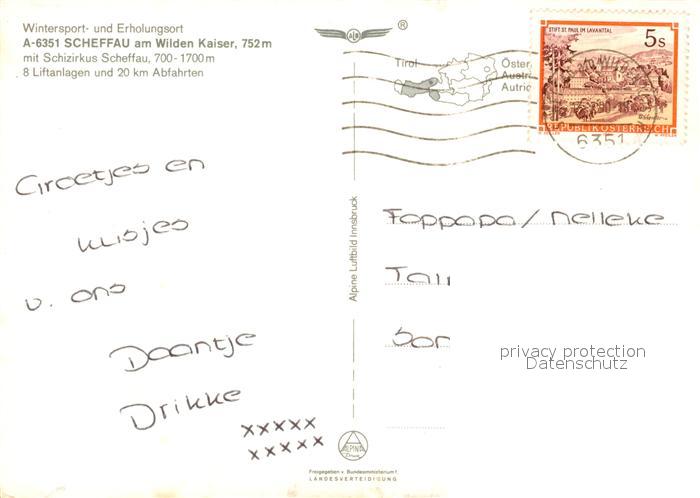 Wintersport- und Erholungsort
A-6351 SCHEFFAU am Wilden Kaiser, 752 m
mit Schizirkus Scheffau, 700-1700 m
8 Liftanlagen und 20 km Abfahrten
®
Tirol
Öster
Austri
Autric
STIFT ST. PAUL IM LAVANTTAL
5s
REPUBLIK ÖSTERREICH
6351
Groetjes en
kusjes
v. ons
Daantje
Drikke
xxxxx
xxxxx
Alpine Luftbild Innsbruck
Foppapa / Nelleke
privacy protection
Datenschutz
ALPINE
Freigegeben v. Bundesministerium f.
LANDESVERTEIDIGUNG